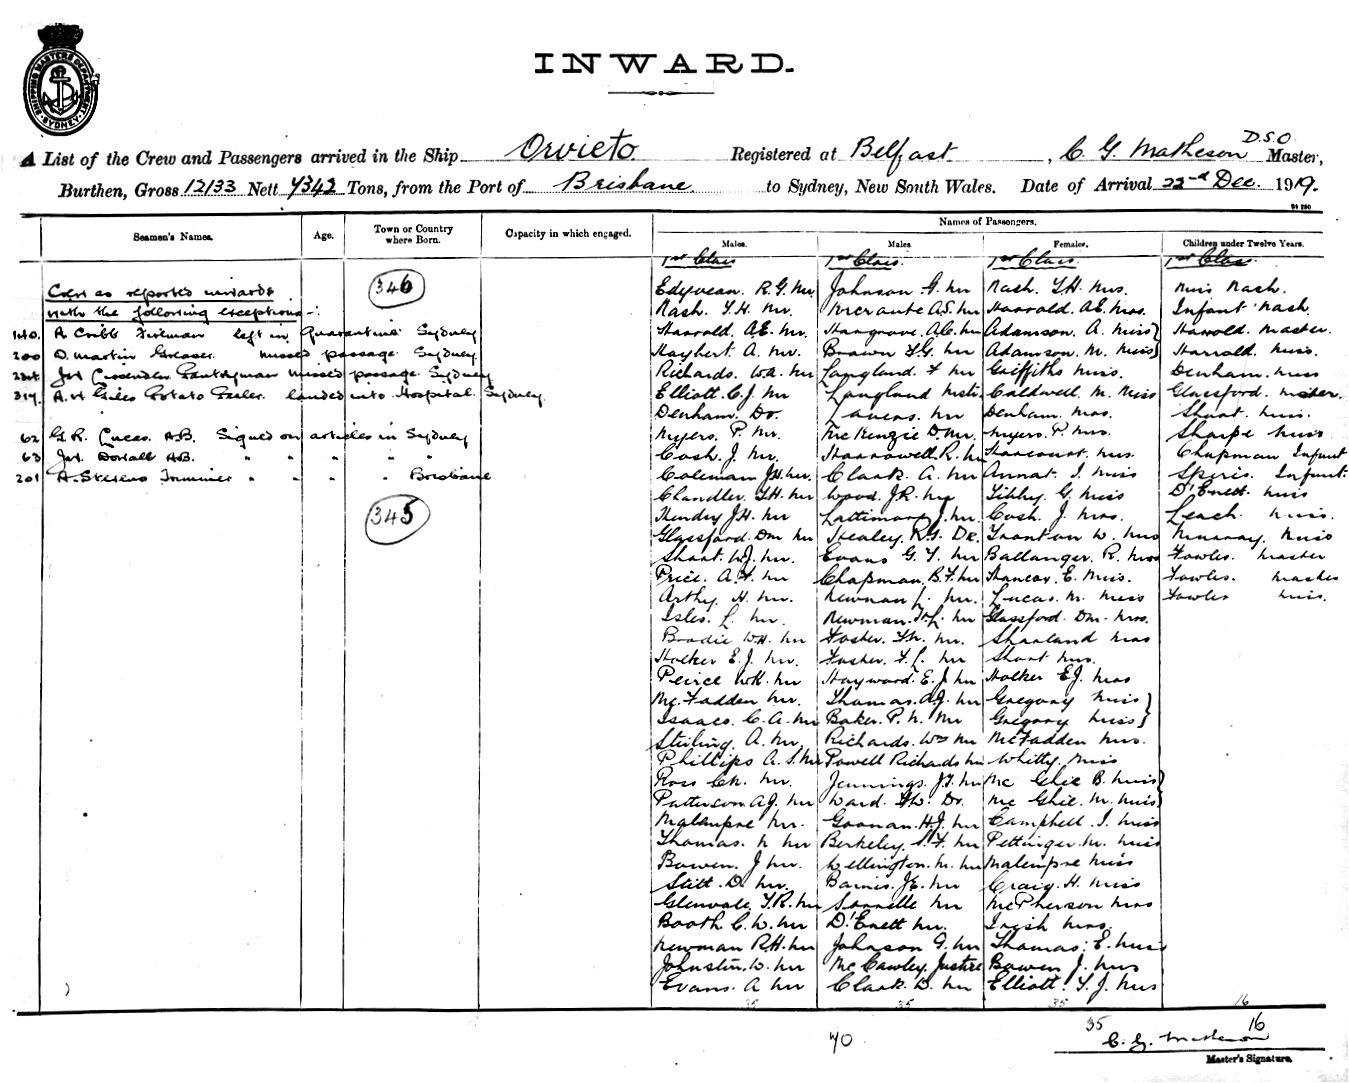 SHIPPING MASTERS DEPARTMENT
SYDNEY
INWARD.
A List of the Crew and Passengers arrived in the Ship Orvieto Registered at Belfast, C. G. Matheson D.S.O Master,
Burthen, Gross 12133 Nett 7342 Tons, from the Port of Brisbane to Sydney, New South Wales. Date of Arrival 22nd Dec. 1919.
Seamen's Names.
Age.
Town or Country where Born.
Capacity in which engaged.
Names of Passengers.
Males.
Males.
Females.
Children under Twelve Years.
346
Crew as reported inwards
with the following exceptions:
140. A Cribb Fireman left in Quarantine Sydney
200 D. Martin Greaser missed passage Sydney
Pantryman missed passage Sydney
317. A. H Giles Potato Peeler landed into Hospital Sydney
62 G. R. Lucas. A.B. Signed on articles in Sydney
63 Jas. A.B. " " " " "
201 A. Stevens Trimmer " " " " Brisbane
345
1st Class
Edyvean. R. G. Mr
Nash. T. H. Mr.
Harrold. A. E. Mr.
Haybert A. Mr.
Richards. W. A. Mr
Elliott. C. J. Mr
Denham. Dr.
Myers. P. Mr.
Cosh. J. Mr.
Coleman J. H. Mr.
Chandler. T. H. Mr
Hendry J. H. Mr
Glassford. D. M. Mr
Short. W. J. Mr.
Price. A. F. Mr
Arthy. H. Mr.
Isles. L. Mr.
Brodie W. H. Mr
Holker E. J. Mr.
Peirce W. K. Mr
McFadden Mr.
Isaacs. C. A. Mr
Sterling. A. Mr.
Phillips A. S. Mr
Ross Mr.
Patterson. A. J. Mr
Malempre Mr.
Thomas. N Mr
Bowen. J Mr.
Stitt. D. Mr.
Glenvale. T. R. Mr
Booth. C. W. Mr
Newman R. H. Mr
Johnston. W. Mr
Evans. A Mr
35
1st Class.
Johnson G. Mr
Mercante A. S. Mr
Hargrove. A. C. Mr
Brown F. G. Mr
Langland. F Mr
Langland
Lavers. Mr
McKenzie D. Mr.
Harrowell R. Mr
Clark A. Mr
Wood. J. R. Mr
Lattimore J. Mr.
Healey. R. G. Dr.
Evans G. T. Mr
Chapman. B. F. Mr
Newman L. Mr.
Newman. H. L. Mr
Foster. Mr.
Foster. F. L. Mr
Hayward. E. J. Mr
Thomas. A. J. Mr
Baker. P. N. Mr
Richards. Wm Mr
Powell Richards Mr
Jennings. J. T. Mr
Ward. F. W. Dr.
Goonan. H. J. Mr
Berkeley. Mr
Wellington. M. Mr
Barnes. J. E. Mr
Mr
D'Enett Mr.
Johnson G. Mr
McCawley. Justice
Clark D. Mr
35
1st Class.
Nash. T. H. Mrs.
Harrold. A. E. Mrs.
Adamson. A. Miss
Adamson. M. Miss
Griffiths Miss.
Caldwell. M. Miss
Denham. Mrs.
Myers. P. Mrs.
Harcourt. Mrs.
Annat. I. Miss
Libby. G. Miss
Cosh. J. Mrs.
W. Mrs
Ballanger. R. Mrs
Hancox. E. Miss.
Lucas. M. Miss
Glassford. D. M. Mrs.
Sharland Mrs
Short Mrs.
Holker E. J. Mrs
Gregory Miss
Gregory Miss
McFadden Mrs.
Whitty. Miss
McGhie B. Miss
McGhie. M. Miss
Campbell. I. Miss
Pettinger. M. Miss
Malempre Miss
Craig. H. Miss
McPherson Mrs
Irish Mrs.
Thomas. E. Miss
Bowen J. Mrs
Elliott. T. J. Mrs
35
1st Class
Miss Nash.
Infant Nash.
Harrold. Master.
Harrold. Miss.
Denham. Miss
Glassford. Master.
Short. Miss.
Sharpe Miss
Chapman Infant
Infant.
D'Enett. Miss
Leach. Miss.
Murray. Miss
Fowles. Master
Fowles. Master
Fowles Miss.
16
70
35
16
C. G. Matheson
Master's Signature.